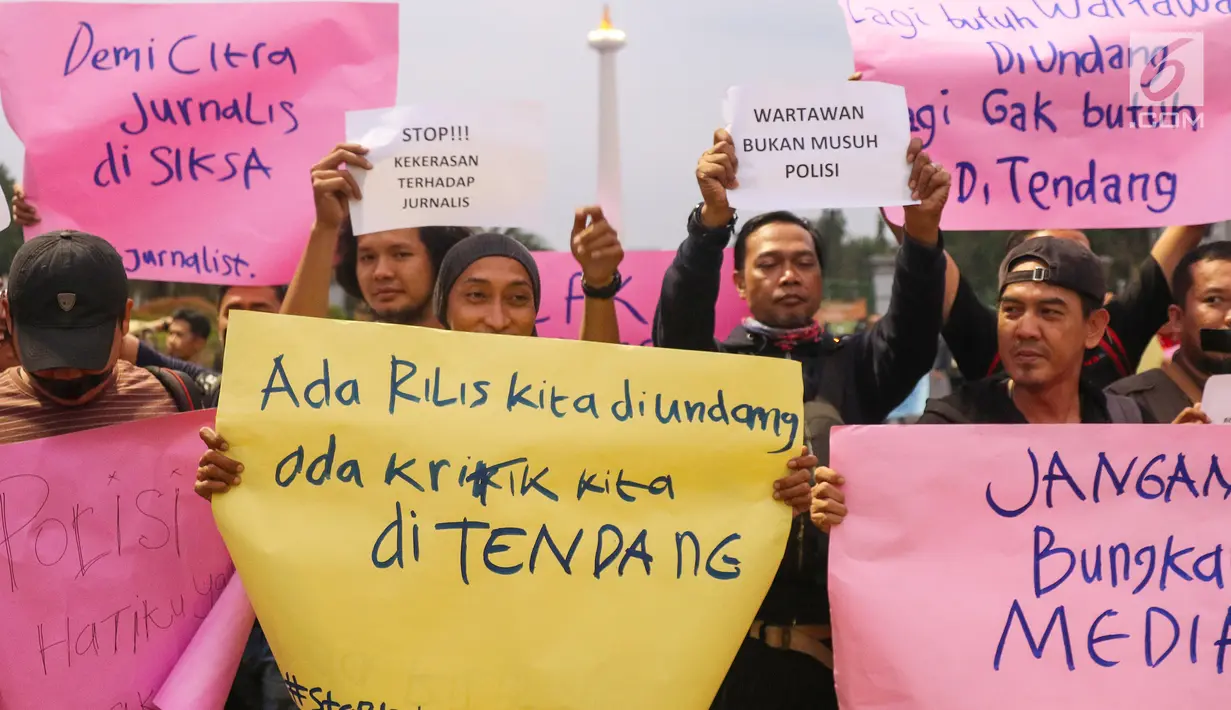 Demi Citra
Jurnalis
di SIKSA
Journalist.
STOP!!!
KEKERASAN
TERHADAP
JURNALIS
WARTAWAN
BUKAN MUSUH
POLISI
Lagi butuh Wartawa
DiUndang
agi Gak butuh
Di Tendang
6
.COM
Ada RILIS kita diundang
ada kriktik kita
di TENDANG
POLISI
HATIKU
JANGAN
Bungka
MEDIA